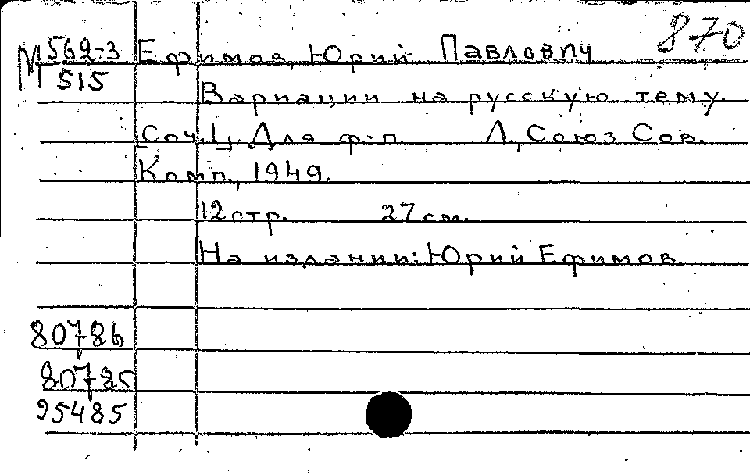 870
М 569-3 Ефимов, Юрий Павлович
515
Вариации на русскую тему.
[Соч.]. Для ф-п. Л, Союз Сов.
Комп., 1949.
12 стр. 27 см.
На издании: Юрий Ефимов
80786
80785
95485